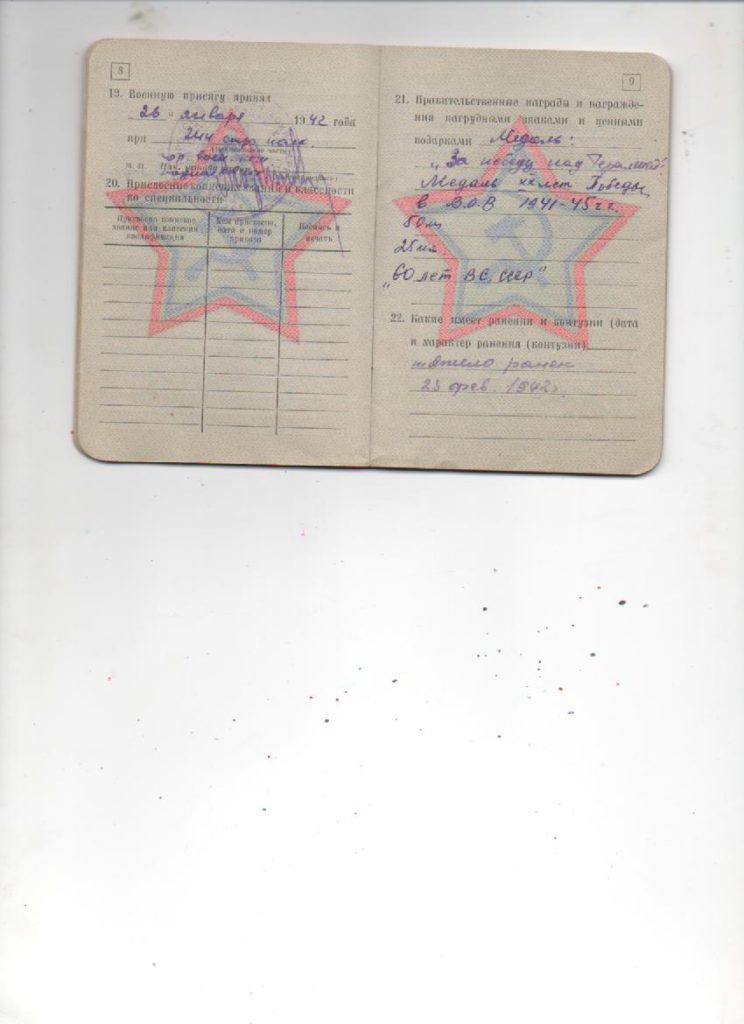 8
19. Военную присягу принял
26 " января 1942 года
при 244
М. П.
20. Присвоение воинских званий и классности
по специальности
Присвоено воинское
звание или классная
квалификация
Кем присвоено,
дата и номер
приказа
Подпись и
печать
9
21. Правительственные награды и награжде-
ния нагрудными знаками и ценными
подарками Медаль:
„За победу над
Медаль ХХ лет Победы
в В.О.В 1941-45 гг.
50 лет
25 лет
„60 лет ВС СССР"
22. Какие имеет ранения и контузии (дата
и характер ранения (контузии)
тяжело ранен
23 фев. 1942 г.